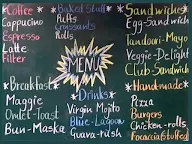 *Coffee*
Cappuccino
Espresso
Latte
Filter
*Breakfast*
Maggie
Omlet-Toast
Bun-Maska
*Baked Stuff*
Puffs
Croissants
Rolls
MENU
*Drinks*
Virgin Mojito
Blue-Lagoon
Guava-rush
*Sandwiches*
Egg-Sandwich
Tandoori-Mayo
Veggie-Delight
Club-Sandwich
*Hand-made*
Pizza
Burgers
Chicken-rolls
Focaccia stuffed